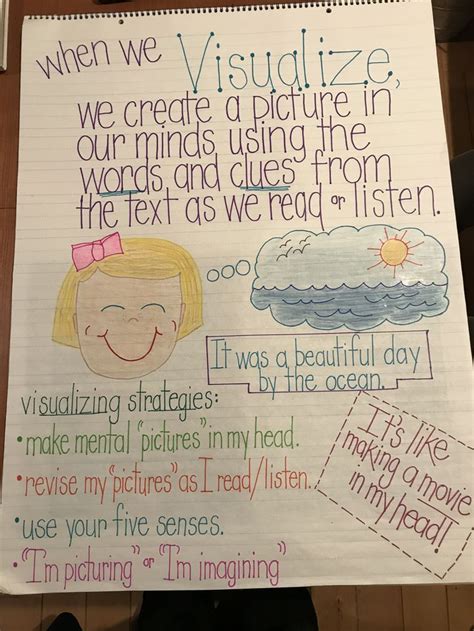 when we Visualize,
we create a picture in
our minds using the
words and clues from
the text as we read or listen.
It was a beautiful day
by the ocean.
visualizing strategies:
• make mental "pictures" in my head.
• revise my "pictures" as I read/listen.
• use your five senses.
• "I'm picturing" or "I'm imagining"
It's like
making a movie
in my head!